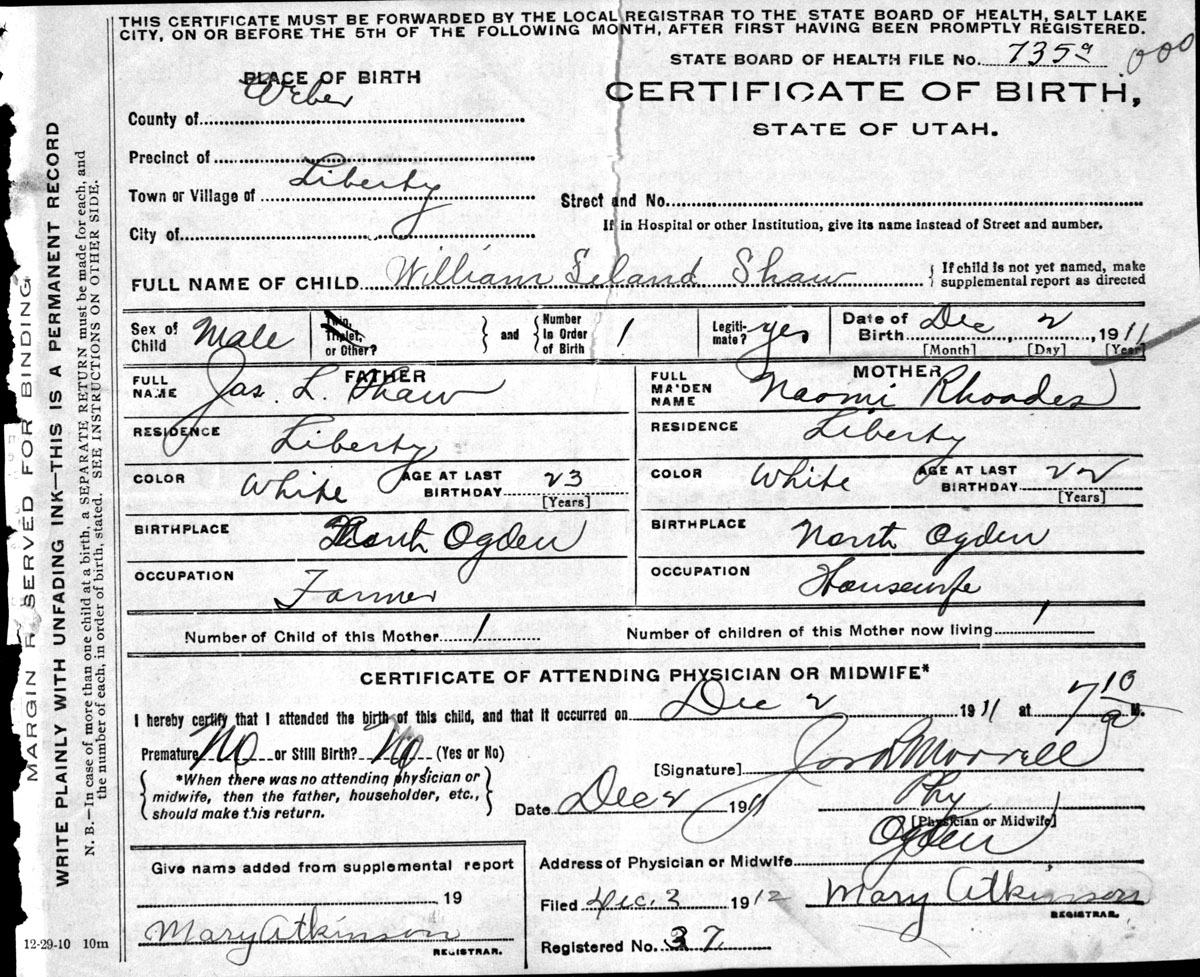 THIS CERTIFICATE MUST BE FORWARDED BY THE LOCAL REGISTRAR TO THE STATE BOARD OF HEALTH, SALT LAKE
CITY, ON OR BEFORE THE 5TH OF THE FOLLOWING MONTH, AFTER FIRST HAVING BEEN PROMPTLY REGISTERED.
STATE BOARD OF HEALTH FILE No. 735a 000
PLACE OF BIRTH
CERTIFICATE OF BIRTH,
STATE OF UTAH.
County of Weber
Precinct of
Town or Village of Liberty
Street and No.
City of
If in Hospital or other Institution, give its name instead of Street and number.
FULL NAME OF CHILD William Leland Shaw { If child is not yet named, make
supplemental report as directed
Sex of Child Male Twin, Triplet, or Other? } and { Number In Order of Birth 1 Legitimate? yes. Date of Birth Dec 2, 1911
[Month] [Day] [Year]
FATHER
FULL NAME Jas. L. Shaw
RESIDENCE Liberty
COLOR White AGE AT LAST BIRTHDAY 23
[Years]
BIRTHPLACE North Ogden
OCCUPATION Farmer
MOTHER
FULL MAIDEN NAME Naomi Rhoades
RESIDENCE Liberty
COLOR White AGE AT LAST BIRTHDAY 22
[Years]
BIRTHPLACE North Ogden
OCCUPATION Housewife
Number of Child of this Mother 1 Number of children of this Mother now living 1
CERTIFICATE OF ATTENDING PHYSICIAN OR MIDWIFE*
I hereby certify that I attended the birth of this child, and that it occurred on Dec 2 1911 at 7 10 a M.
Premature No or Still Birth? No (Yes or No)
{ *When there was no attending physician or
midwife, then the father, householder, etc.,
should make this return. }
[Signature] Morrell
Date Dec 2 1911 Phy
[Physician or Midwife]
Address of Physician or Midwife Ogden
Filed Dec. 3 1912 Mary Atkinson
REGISTRAR.
Registered No. 37
Give name added from supplemental report
19
Mary Atkinson
REGISTRAR.
12-29-10 10m
MARGIN R SERVED FOR BINDING
WRITE PLAINLY WITH UNFADING INK—THIS IS A PERMANENT RECORD
N. B.—In case of more than one child at a birth, a SEPARATE RETURN must be made for each, and
the number of each, in order of birth, stated. SEE INSTRUCTIONS ON OTHER SIDE.